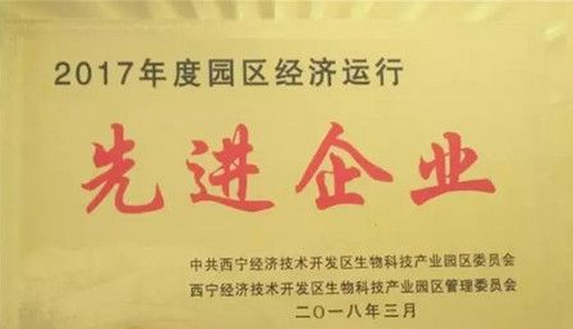 2017年度园区经济运行
先进企业
中共西宁经济技术开发区生物科技产业园区委员会
西宁经济技术开发区生物科技产业园区管理委员会
二〇一八年三月